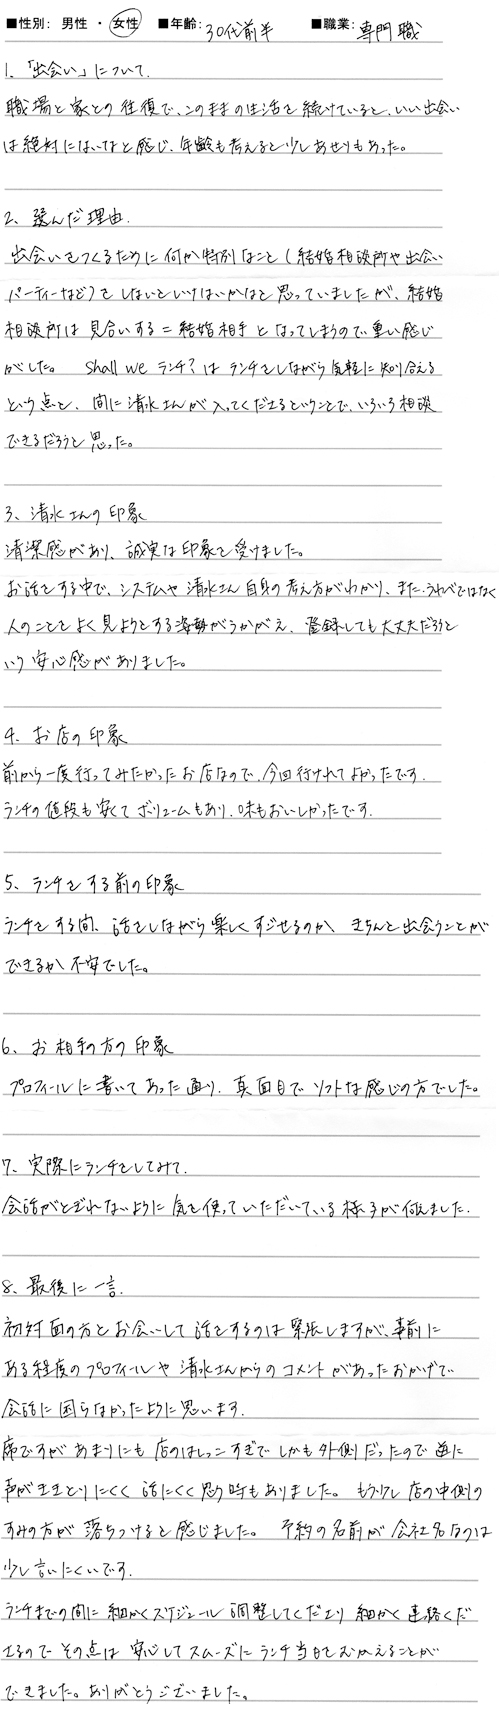 ■性別: 男性 ・ 女性 ■年齢: 30代前半 ■職業: 専門職
1. 「出会い」について.
職場と家との往復で、このままの生活を続けていると、いい出会い
は絶対にはいなと感じ、年齢も考えると少しあせりもあった。
2、選んだ理由.
出会いをつくるために何か特別なこと(結婚相談所や出会い
パーティーなど)をしないといけないかなと思っていましたが、結婚
相談所は見合いする=結婚相手となってしまうので重い感じ
がした。 Shall we ランチ?はランチをしながら気軽に知り合える
という点と、間に清水さんが入ってくださるということで、いろいろ相談
できるだろうと思った。
3、清水さんの印象
清潔感があり、誠実な印象を受けました。
お話をする中で、システムや清水さん自身の考え方がわかり、また、うわべではなく
人のことをよく見ようとする姿勢がうかがえ、登録しても大丈夫だろうと
いう安心感がありました。
4、お店の印象
前から一度行ってみたかったお店なので、今回行けれてよかったです.
ランチの値段も安くてボリュームもあり、味もおいしかったです.
5、ランチをする前の印象
ランチをする間、話をしながら楽しくすごせるのか、きちんと出会うことが
できるか不安でした。
6、お相手の方の印象
プロフィールに書いてあった通り、真面目でソフトな感じの方でした。
7、実際にランチをしてみて.
会話がとぎれないように気を使っていただいている様子が伺えました.
8、最後に一言.
初対面の方とお会いして話をするのは緊張しますが、事前に
ある程度のプロフィールや清水さんからのコメントがあったおかげで
会話に困らなかったように思います.
席ですがあまりにも店のはしっこすぎでしかも外側だったので逆に
声がききとりにくく話にくく思う時もありました。 もう少し店の中側の
すみの方が落ちつけると感じました。 予約の名前が会社名なのは
少し言いにくいです.
ランチまでの間に細かくスケジュール調整してくださり細かく連絡くだ
さるのでその点は安心してスムーズにランチ当日をむかえることが
できました。ありがとうございました。